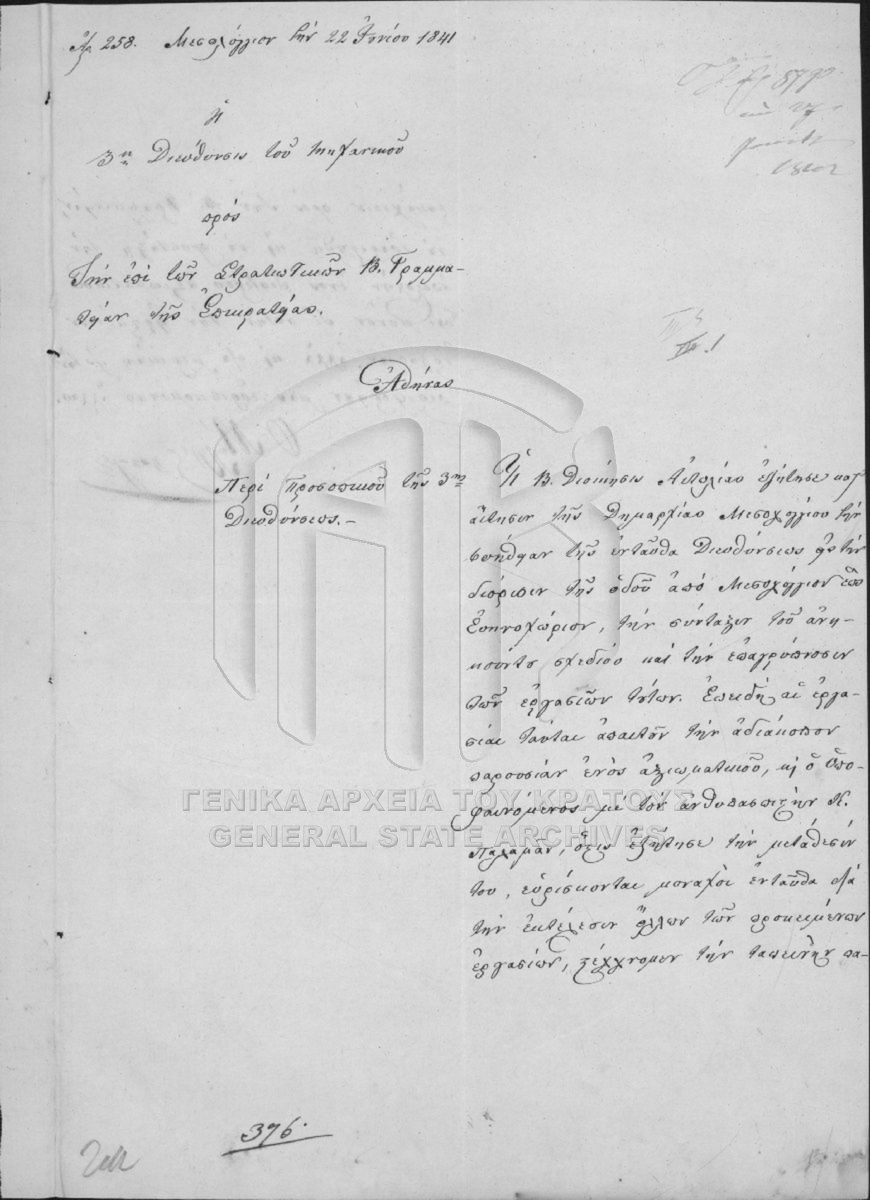 Ἀρ. 258. Μεσολόγγιον τὴν 22 Ἰουνίου 1841
Ἡ
3η Διεύθυνσις τοῦ Μηχανικοῦ
πρὸς
Τὴν ἐπὶ τῶν Στρατιωτικῶν Β. Γραμμα-
τείαν τῆς Ἐπικρατείας.
III.1
Ἀθήνας
Περὶ προσωπικοῦ τῆς 3ης
Διευθύνσεως.-
Ἡ Β. Διοίκησις Αἰτωλίας ἐζήτησε κατ'
αἴτησιν τῆς Δημαρχίας Μεσολογγίου τὴν
τῆς ἐνταῦθα Διευθύνσεως εἰς τὴν
τῆς ὁδοῦ ἀπὸ Μεσολόγγιον
Ἐπηνοχώριον, τὴν σύνταξιν τοῦ ἀνή-
κοντος σχεδίου καὶ τὴν ἐπαγρύπνησιν
τῶν ἐργασιῶν τούτων. Ἐπειδὴ αἱ ἐργα-
σίαι ταῦται ἀπαιτοῦν τὴν ἀδιάκοπον
παρουσίαν ἑνὸς ἀξιωματικοῦ, κ ὁ ὑπο-
φαινόμενος μὲ τὸν ἀνθυπασπιστὴν Κ.
Παλαμᾶν, ὅστις ἐζήτησε τὴν μετάθεσίν
του, εὑρίσκονται μοναχοὶ ἐνταῦθα διὰ
τὴν ἐκτέλεσιν ὅλων τῶν προκειμένων
ἐργασιῶν, τὴν ταπεινὴν πα-
376.
ΓΕΝΙΚΑ ΑΡΧΕΙΑ ΤΟΥ ΚΡΑΤΟΥΣ
GENERAL STATE ARCHIVES